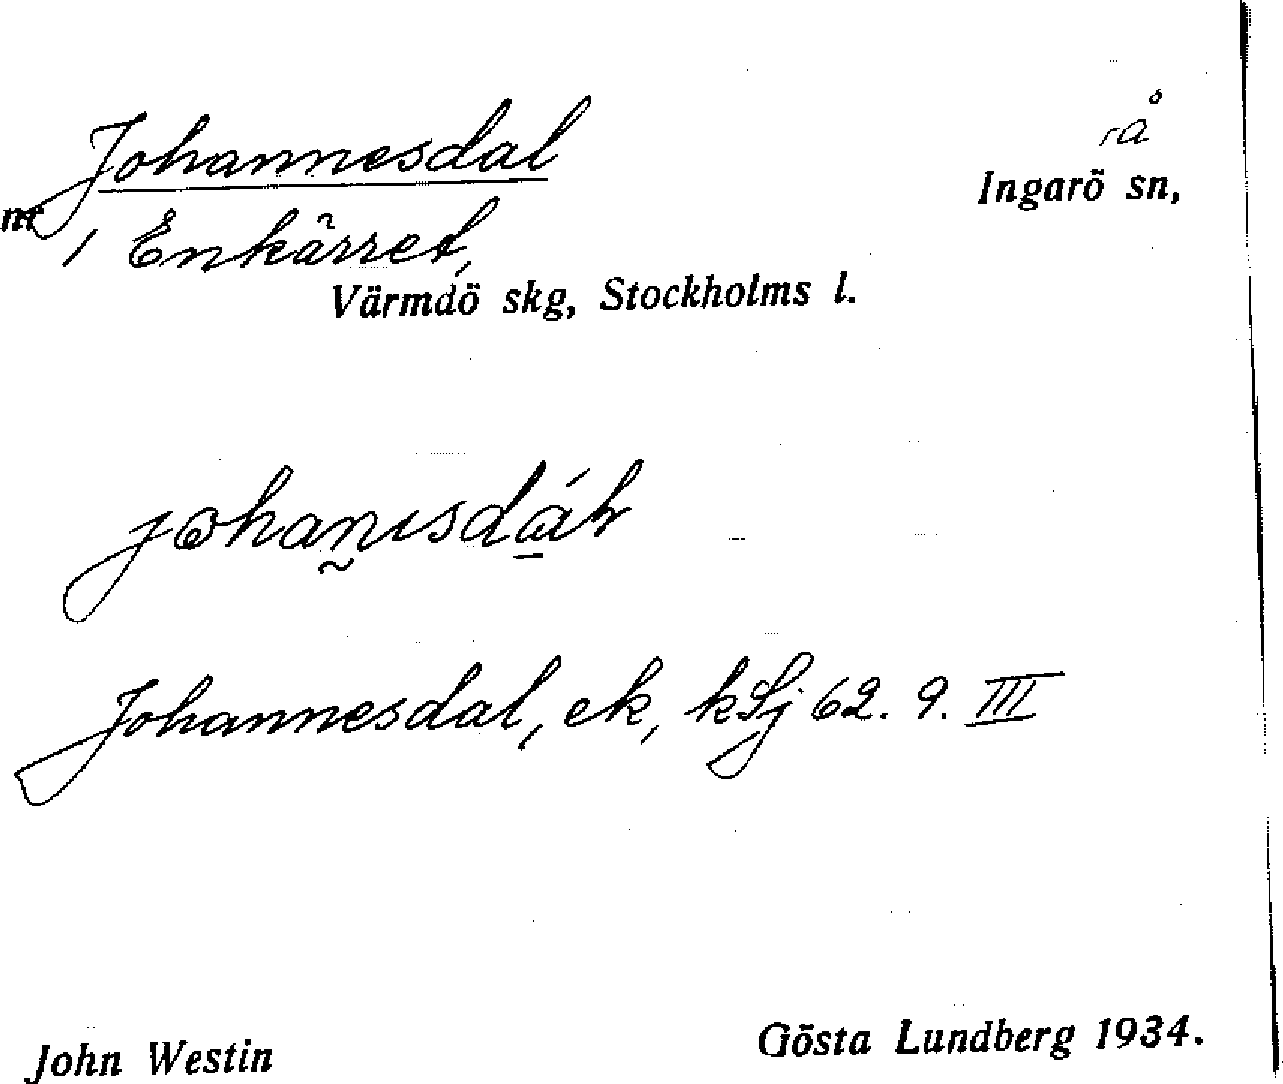 Johannesdal rå
Ingarö sn,
nr 1 Enkärret,
Värmdö skg, Stockholms l.
Johannesdal, ek, kSj 62. 9. III
John Westin Gösta Lundberg 1934.